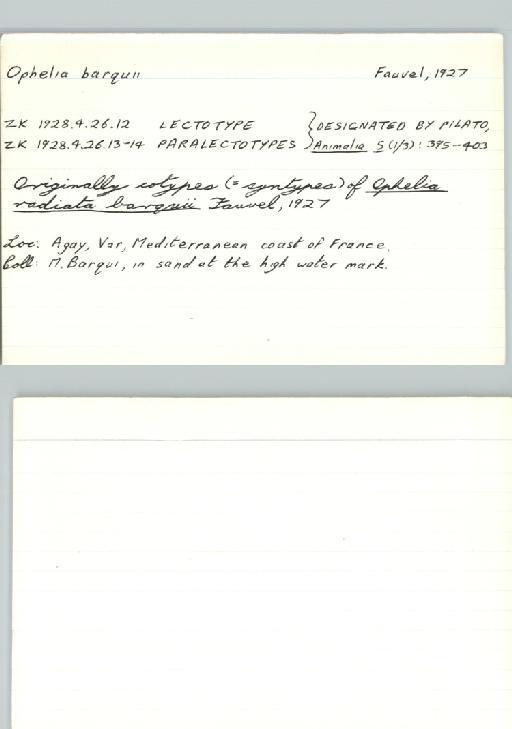 Ophelia barquii Fauvel, 1927
ZK 1928.4.26.12 LECTOTYPE } DESIGNATED BY PILATO,
ZK 1928.4.26.13-14 PARALECTOTYPES } Animalia 5 (1/3): 395-403
Originally cotypes (= syntypes) of Ophelia
radiata barquii Fauvel, 1927
Loc: Agay, Var, Mediterranean coast of France.
Coll: M. Barqui, in sand at the high water mark.